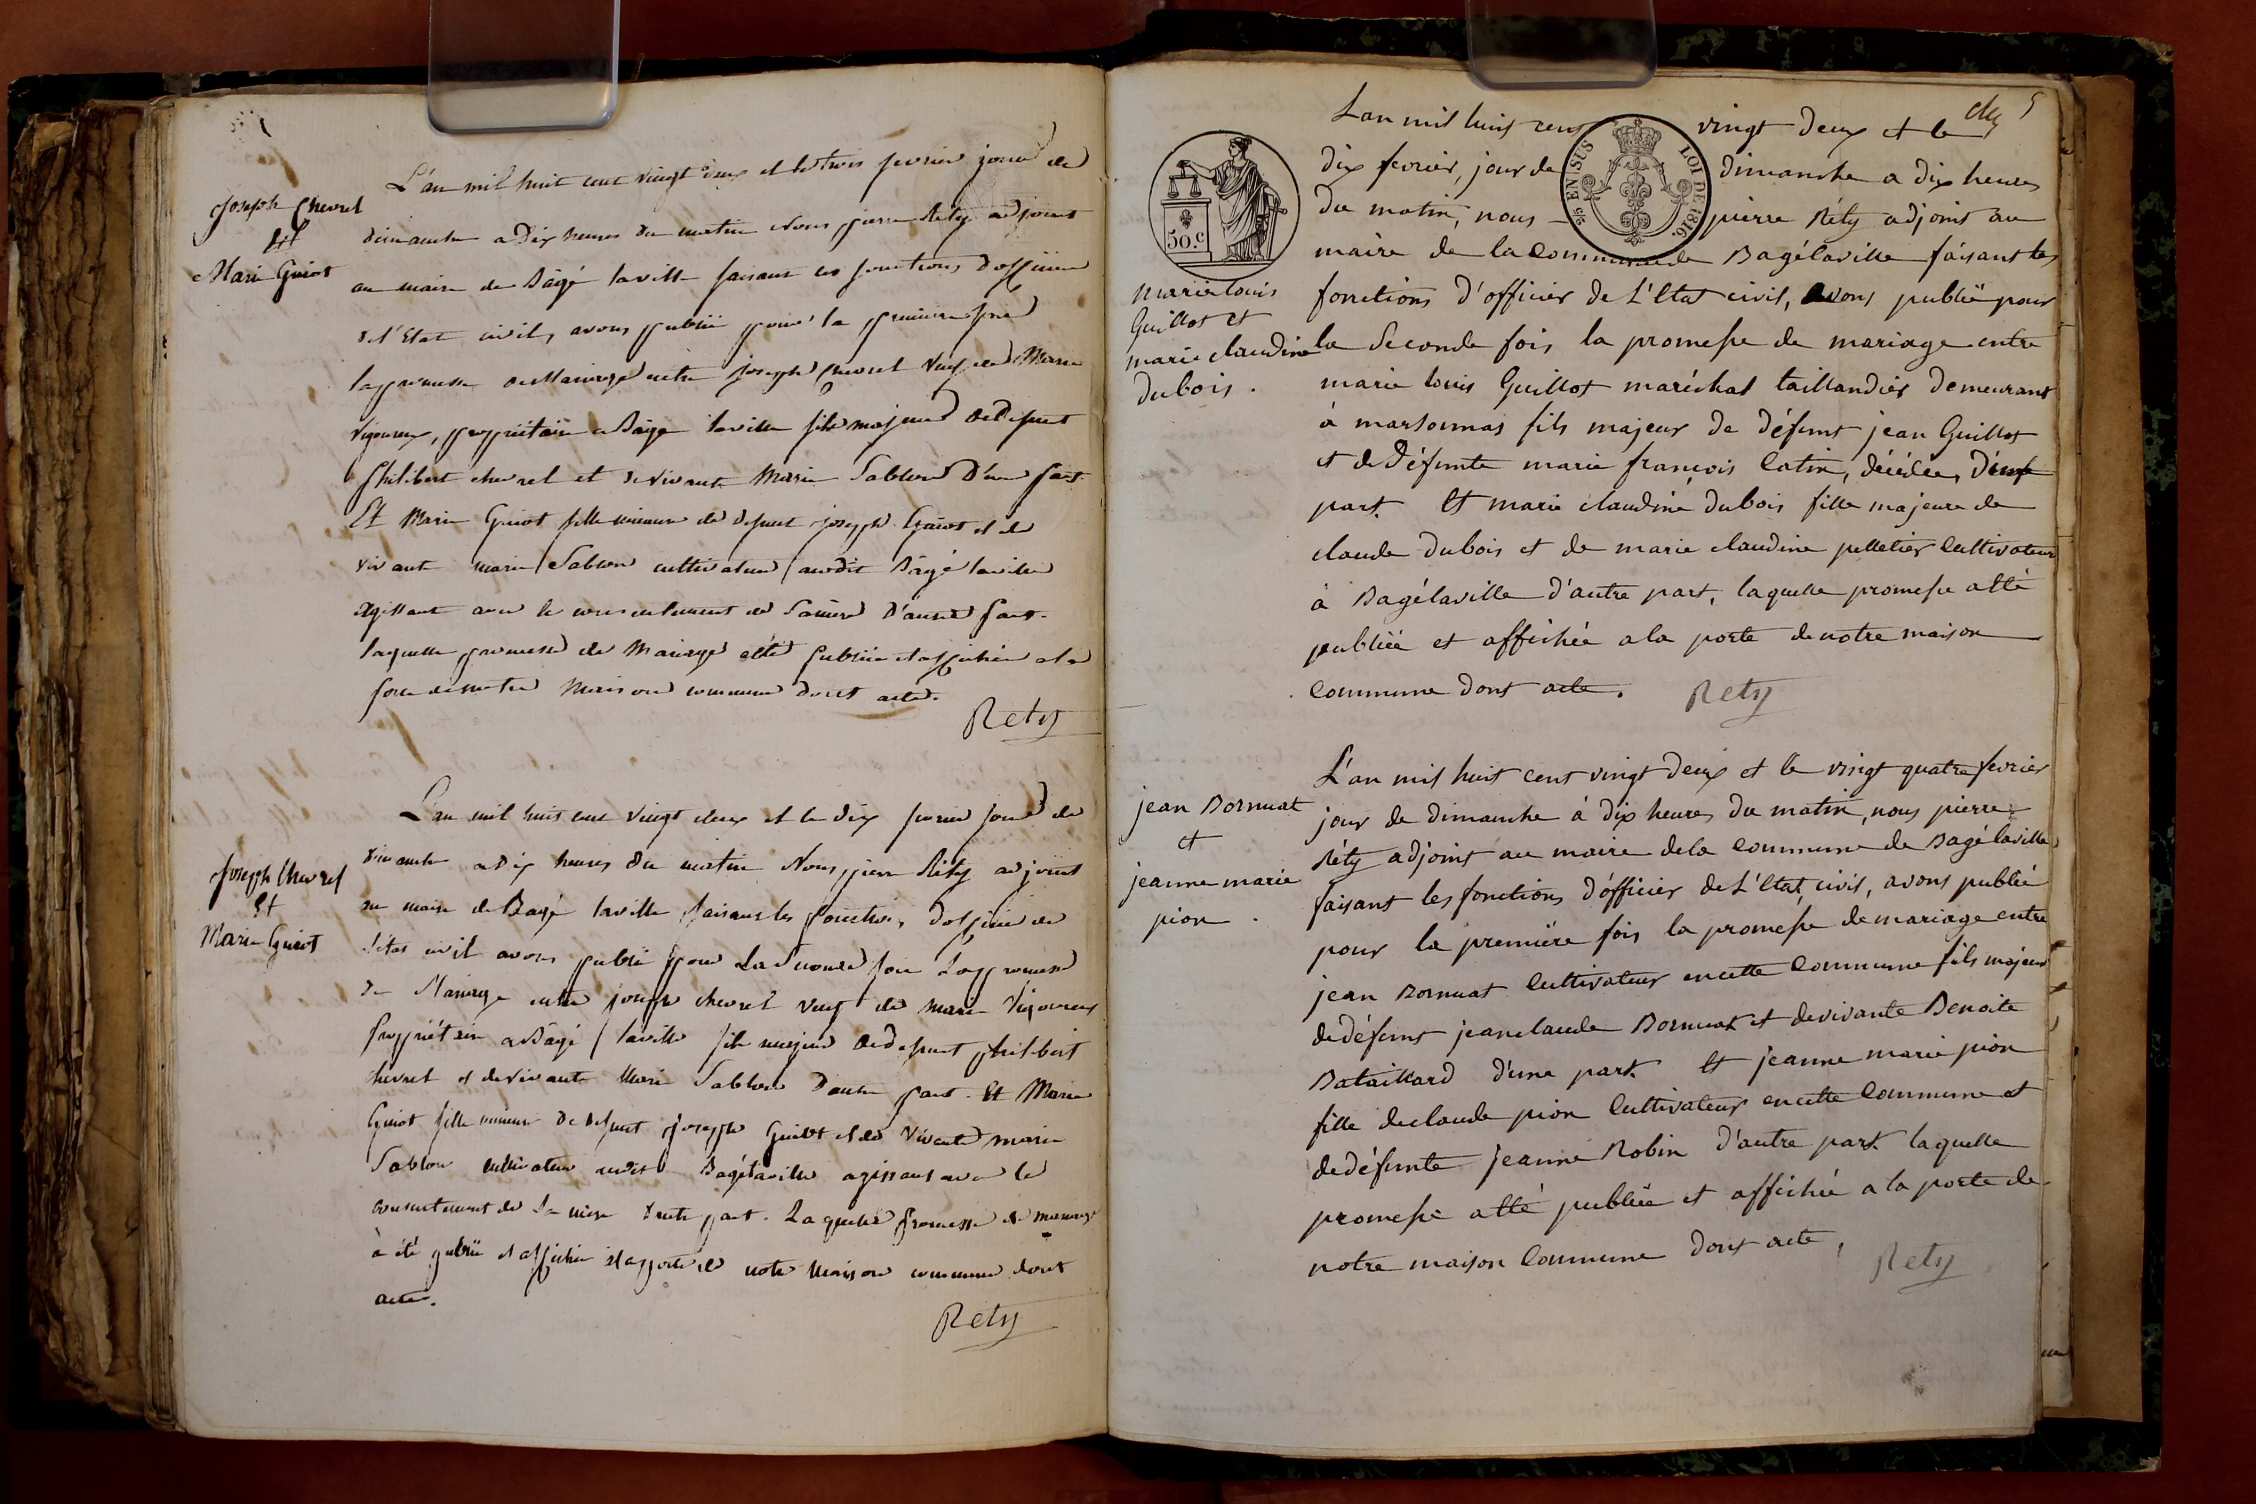 Joseph Chevrel
Et
Marie Guiot
L'an mil huit cent vingt deux et le trois fevrier jour de
dimanche a dix heures du matin Nous pierre Rety adjoint
au maire de Bâgé laville faisant les fonctions d'officier
de l'Etat civil, avons publié pour la premiere fois
la promesse de Mariage entre Joseph Chevrel veuf de Marie
Vigoureux, propriétaire a Bâgé laville fils majeur de defunt
Philibert chevrel et de vivante Marie Sablon D'une part
Et Marie Guiot fille mineure de defunt joseph Guiot et de
vivante marie Sablon cultivateur audit Bâgé laville
agissant avec le consentement de sa mere d'autre part.
laquelle promesse de Mariage a été publiée et affichée a la
porte de notre Maison commune dont acte.
Rety
Joseph Chevrel
Et
Marie Guiot
L'an mil huit cent vingt deux et le dix fevrier jour de
dimanche a dix heures du matin Nous pierre Réty adjoint
au maire de Bagé laville faisant les fonctions d'officier de
l'état civil avons publié pour La Seconde fois La promesse
de Mariage entre joseph chevrel veuf de marie Vigoureux
propriétaire a Bâgé laville fils majeur de defunt philibert
chevrel et de vivante Marie Sablon D'autre part. Et Marie
Guiot fille mineure de defunt joseph Guiot et de vivante marie
Sablon cultivateur audit Bagélaville agissant avec le
consentement de sa mere d'autre part. Laquelle promesse de mariage
à été publiée et affichée a la porte de notre Maison commune dont
acte.
Rety
5
50.c
25 EN SUS
LOI DE 1816.
marie louis
Guillot et
marie claudine
dubois.
L'an mil huit cent vingt deux et le
dix fevrier, jour de dimanche a dix heures
du matin, nous pierre Réty adjoint au
maire de la commune de Bagélaville faisant les
fonctions d'officier de L'Etat civil, avons publié pour
la Seconde fois la promesse de mariage entre
marie louis Guillot maréchal taillandier demeurant
à marsonnas fils majeur de défunt jean Guillot
et de Défunte marie françois Catin, décédée, d'une
part. Et marie claudine dubois fille majeure de
claude dubois et de marie claudine pelletier Cultivateur
à Bagélaville d'autre part, laquelle promesse a été
publiée et affichée a la porte de notre maison
Commune dont acte. Rety
jean Bornuat
et
jeanne marie
pion.
L'an mil huit cent vingt deux et le vingt quatre fevrier
jour de dimanche à dix heures du matin, nous pierre
Réty adjoint au maire dela Commune de Bagélaville
faisant les fonctions d'officier de L'Etat civil, avons publié
pour la première fois la promesse de mariage entre
jean Bornuat Cultivateur en cette Commune fils majeur
de défunt jean claude Bornuat et de vivante Benoite
Bataillard d'une part Et jeanne marie pion
fille de claude pion Cultivateur en cette Commune et
de défunte jeanne Robin d'autre part laquelle
promesse a été publiée et affichée a la porte de
notre maison Commune dont acte, Rety